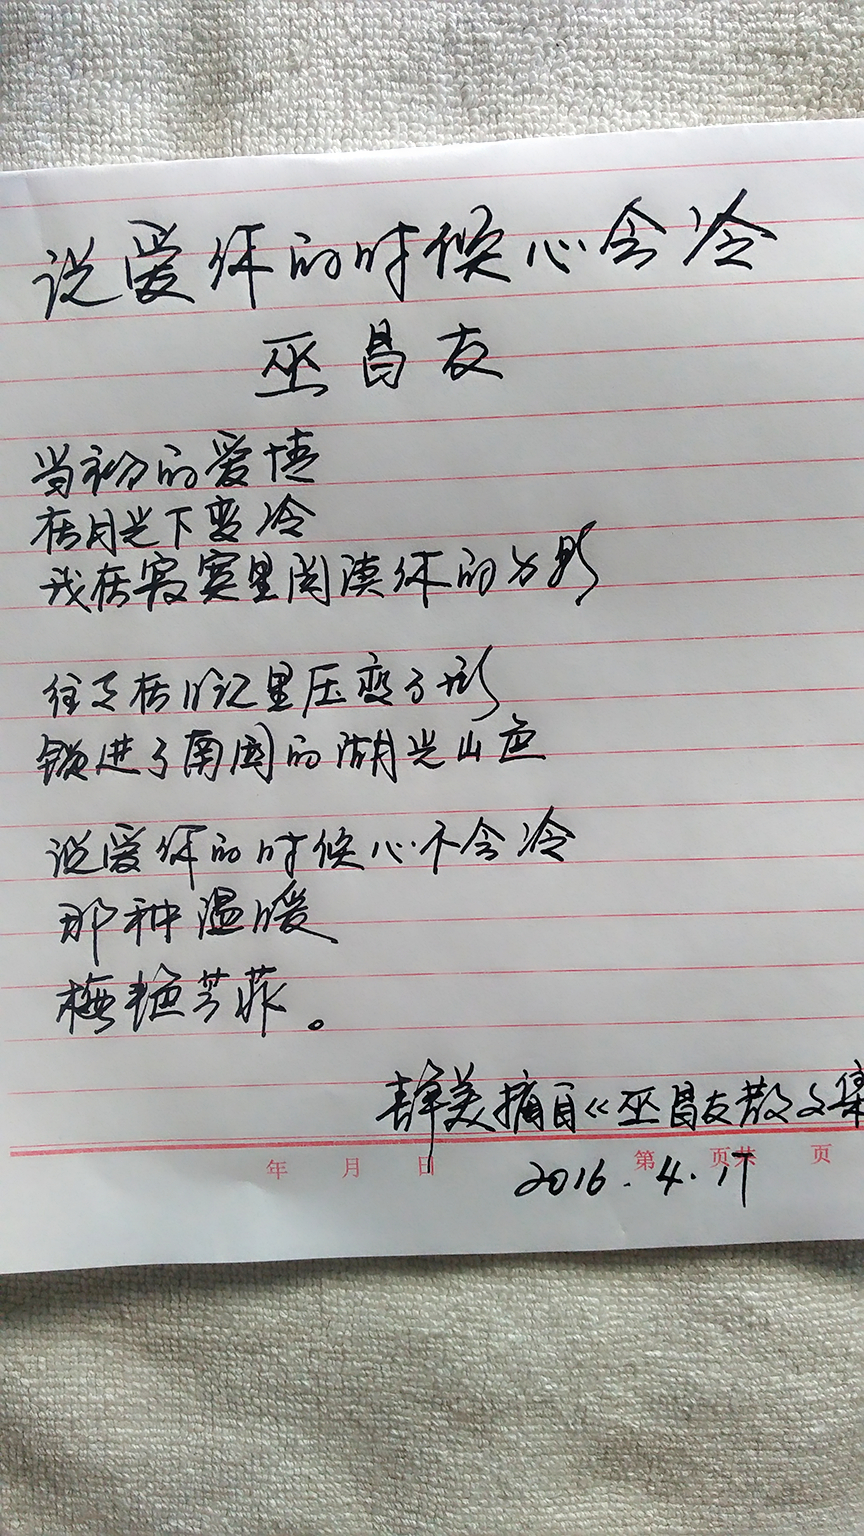 说爱你的时候心会冷
巫昌友
当初的爱情
在月光下变冷
我在寂寞里阅读你的身影
往事在记忆里压变了形
锁进了南国的湖光山色
说爱你的时候心不会冷
那种温暖
梅艳芳菲。
静美摘自《巫昌友散文集
年 月 日 第 页共 页
2016.4.17